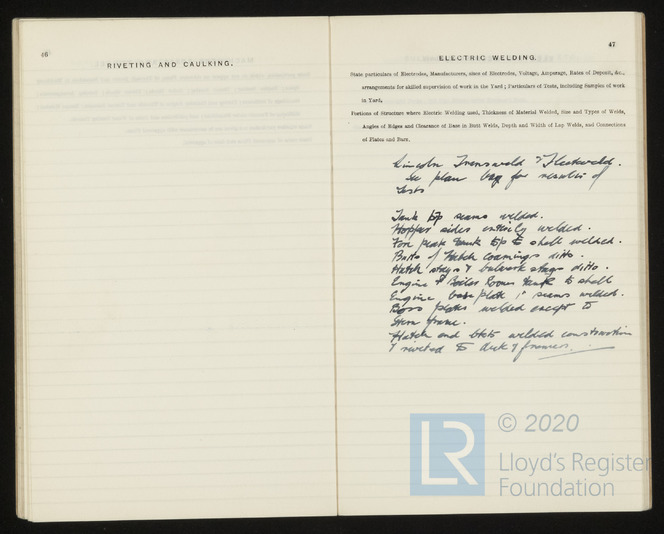 46
RIVETING AND CAULKING.
47
ELECTRIC WELDING.
State particulars of Electrodes, Manufacturers, sizes of Electrodes, Voltage, Amperage, Rates of Deposit, &c.,
arrangements for skilled supervision of work in the Yard; Particulars of Tests, including Samples of work
in Yard,
Portions of Structure where Electric Welding used, Thickness of Material Welded, Size and Types of Welds,
Angles of Edges and Clearance of Bars in Butt Welds, Depth and Width of Lap Welds, and Connections
of Plates and Bars.
Lincoln Transweld & Fleetweld.
See plan bag for results of
tests
Tank top seams welded.
Hopper sides entirely welded.
Fore peak tank top to shell welded.
Butts of Hatch Coamings ditto.
Hatch stays & bulwark stays ditto.
Engine & Boiler Room tank to shell
Engine base plate seams welded.
Boss plates welded except to
Stern frame.
Hatch end welded construction
& riveted to deck & frames.
LR
© 2020
Lloyd's Register
Foundation